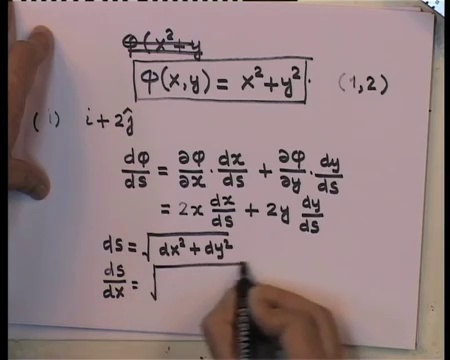 φ(x²+y
φ(x,y) = x²+y². (1,2)
(i) i+2ĵ
dφ/ds = ∂φ/∂x · dx/ds + ∂φ/∂y · dy/ds
= 2x dx/ds + 2y dy/ds
ds = √(dx²+dy²)
ds/dx = √